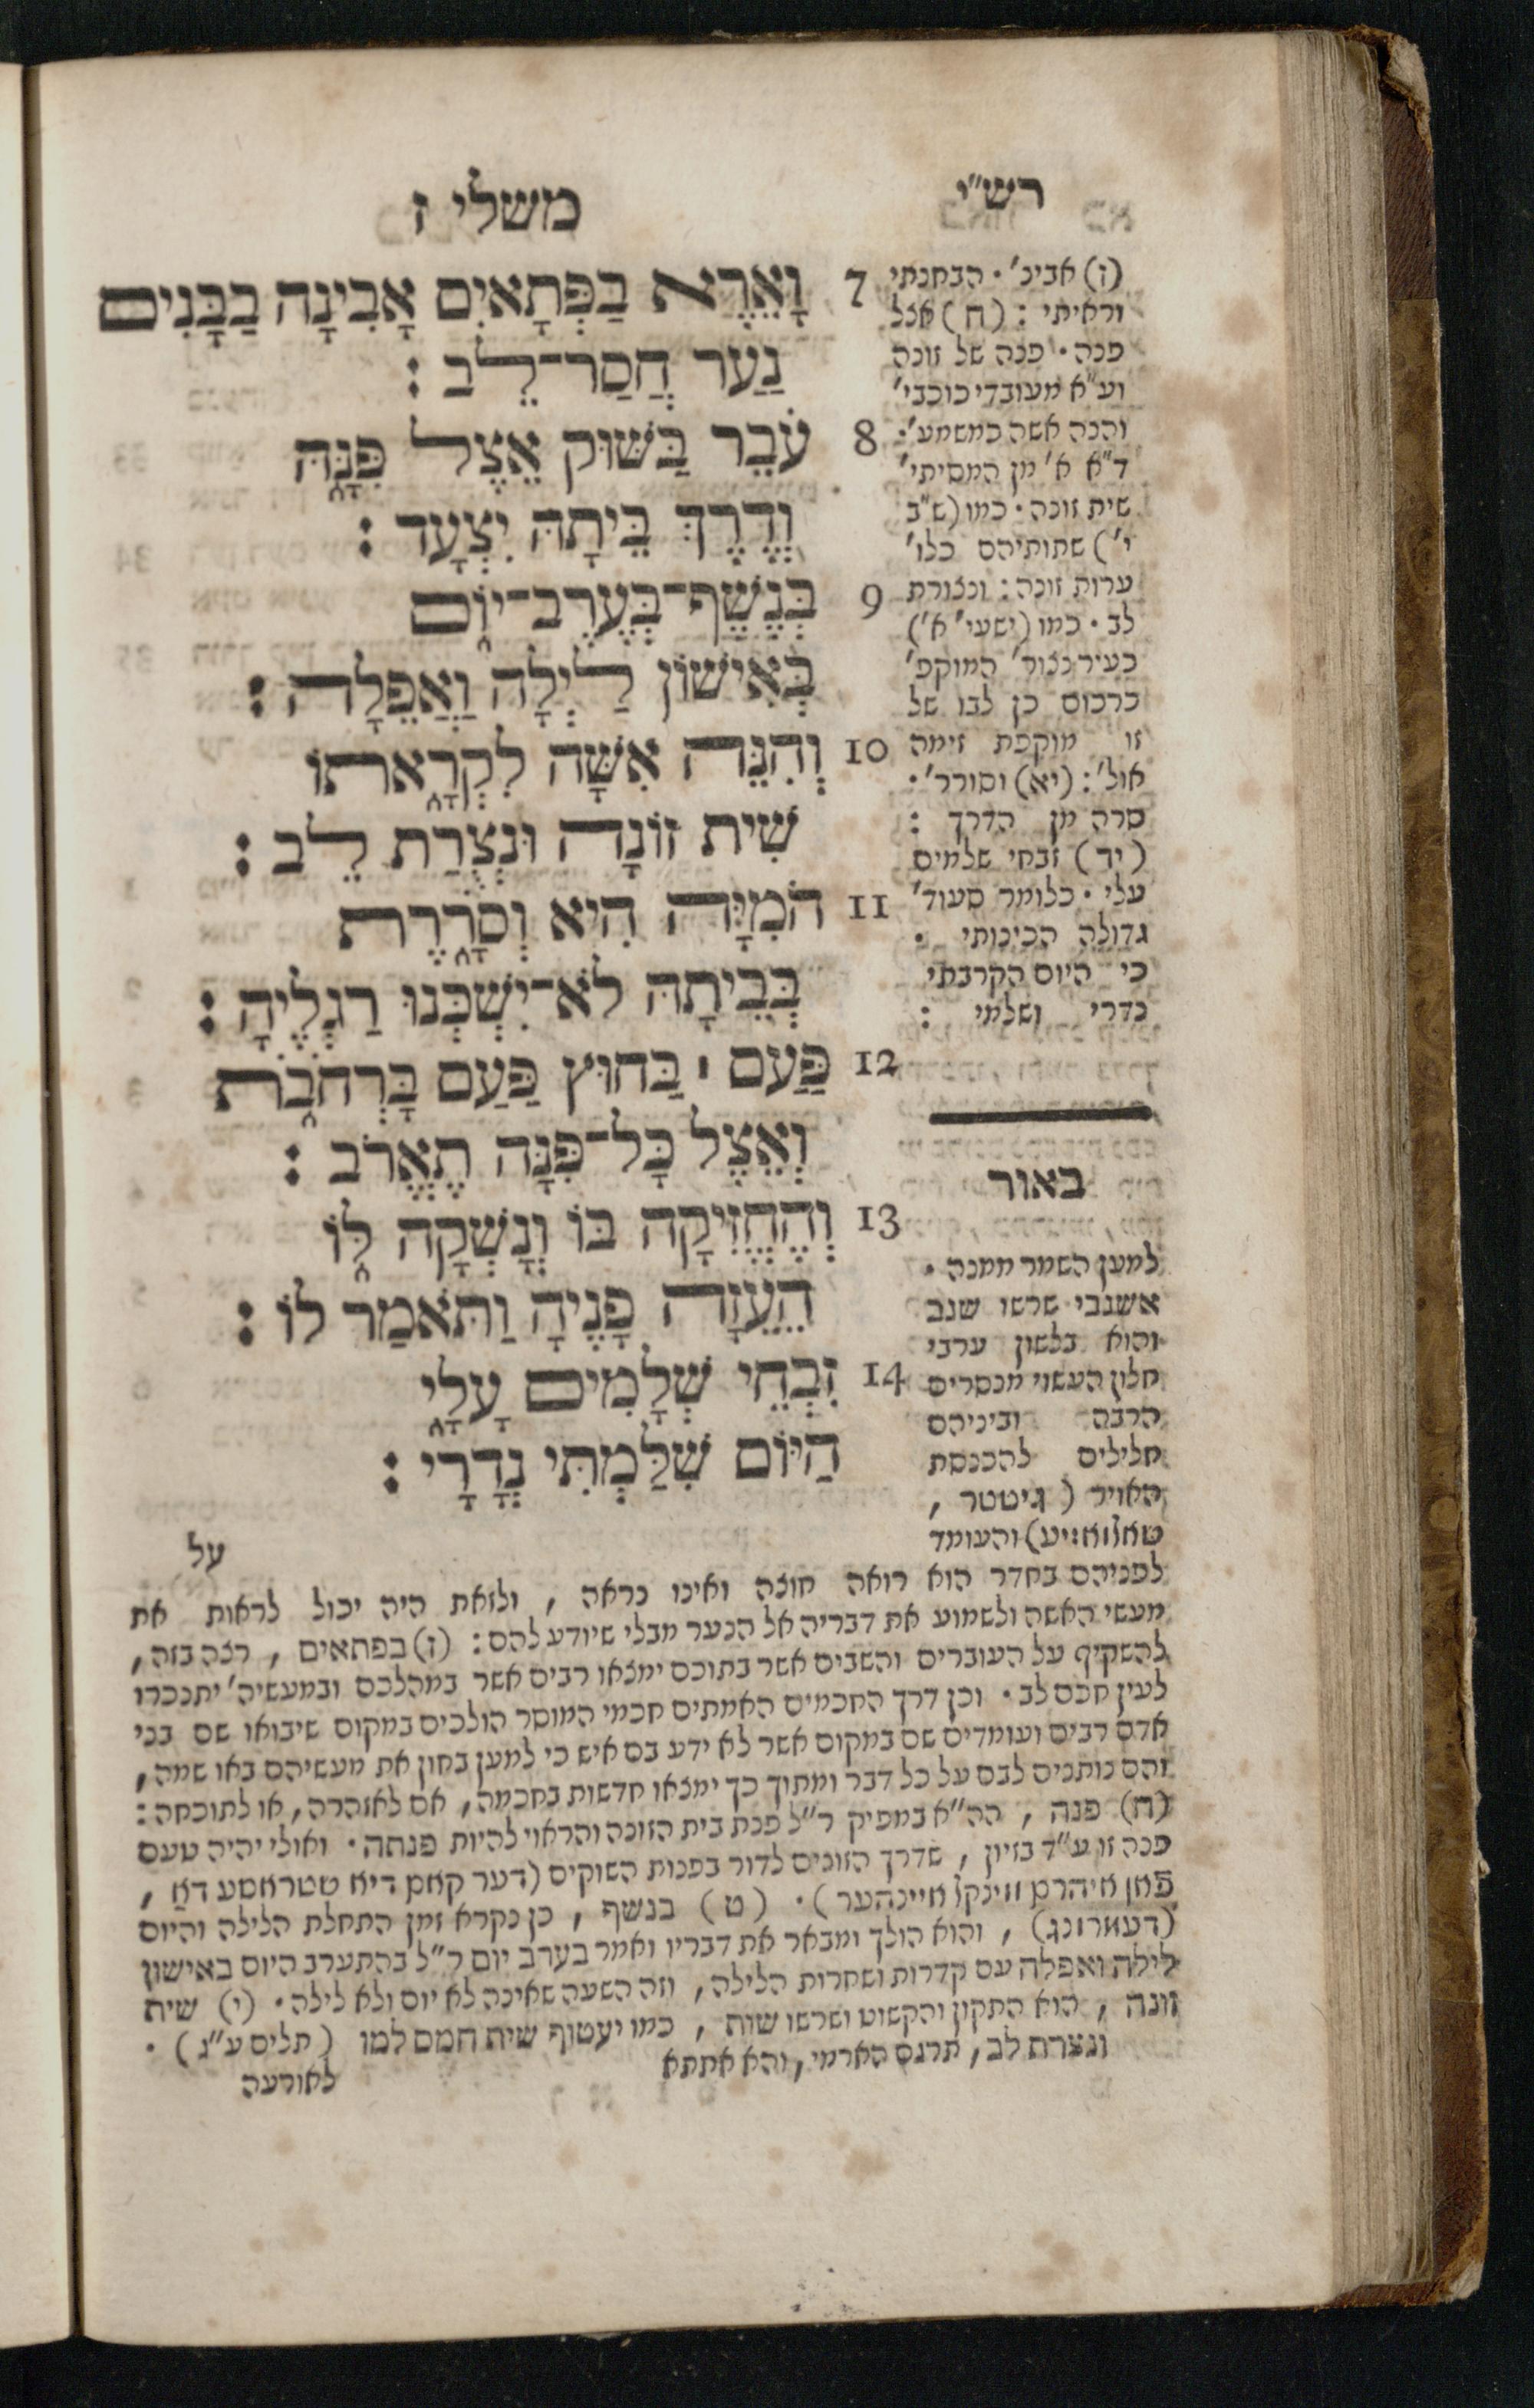 משלי ז
רש״י
7 וָאֵרֶא בַפְּתָאיִם אָבִינָה בַבָּנִים
נַעַר חֲסַר־לֵב :
8 עֹבֵר בַּשּׁוּק אֵצֶל פִּנָּהּ
וְדֶרֶךְ בֵּיתָהּ יִצְעָד :
9 בְּנֶשֶׁף־בְּעֶרֶב־יוֹם
בְּאִישׁוֹן לַיְלָה וַאֲפֵלָה :
10 וְהִנֵּה אִשָּׁה לִקְרָאתוֹ
שִׁית זוֹנָה וּנְצֻרַת לֵב :
11 הֹמִיָּה הִיא וְסֹרָרֶת
בְּבֵיתָהּ לֹא־יִשְׁכְּנוּ רַגְלֶיהָ :
12 פַּעַם ׀ בַּחוּץ פַּעַם בָּרְחֹבֹת
וְאֵצֶל כָּל־פִּנָּה תֶאֱרֹב :
13 וְהֶחֱזִיקָה בּוֹ וְנָשְׁקָה לּוֹ
הֵעֵזָה פָנֶיהָ וַתֹּאמַר לוֹ :
14 זִבְחֵי שְׁלָמִים עָלָי
הַיּוֹם שִׁלַּמְתִּי נְדָרָי :
על
(ז) אבינ׳ · הבחנתי
וראיתי : (ח) אצל
פנה · פנה של זונה
וע״א מעובדי כוכבי׳
והנה אשה כמשמע׳·
ד״א א׳ מן המסיתי׳
שית זונה · כמו (ש״ב
י׳) שתותיהם כלו׳
ערות זונה : ונצורת
לב · כמו (ישעי׳ א׳)
כעיר נצור׳ המוקפ׳
כרכום כן לבו של
זו מוקפת זימה
אול׳ : (יא) וסורר׳ ·
סרה מן הדרך :
(יד) זבחי שלמים
עלי · כלומר סעוד׳
גדולה הכינותי ·
כי היום הקרבתי
נדרי ושלמי :
באור
למען השמר ממנה ·
אשנבי שרשו שנב
והוא בלשון ערבי
חלון העשוי מנסרים
הרבה וביניהם
חלילים להכנסת
האויר ( גיטטר ,
טאלואזיע) והעומד
לפניהם בחדר הוא רואה חוצה ואינו נראה , ולזאת היה יכול לראות את
מעשי האשה ולשמוע את דבריה אל הנער מבלי שיודע להם : (ז) בפתאים , רצה בזה ,
להשקיף על העוברים והשבים אשר בתוכם ימצאו רבים אשר במהלכם ובמעשיה׳ יתנכרו
לעין חכם לב · וכן דרך החכמים האמתים חכמי המוסר הולכים במקום שיבואו שם בני
אדם רבים ועומדים שם במקום אשר לא ידע בם איש כי למען בחון את מעשיהם באו שמה ,
והם נותנים לבם על כל דבר ומתוך כך ימצאו חדשות בחכמה , אם לאזהרה , או לתוכחה :
(ח) פנה , הה״א במפיק ר״ל פנת בית הזונה והראוי להיות פנתה · ואולי יהיה טעם
פנה זו ע״ד בזיון , שדרך הזונים לדור בפנות השוקים (דער קאם דיא שטראסע דא ,
פאן איהרם ווינקל איינהער) · (ט) בנשף , כן נקרא זמן התחלת הלילה והיום
(דעמרונג) , והוא הולך ומבאר את דבריו ואמר בערב יום ר״ל בהתערב היום באישון
לילה ואפלה עם קדרות ושחרות הלילה , וזה השעה שאינה לא יום ולא לילה · (י) שית
זונה , הוא התקון והקשוט ושרשו שות , כמו יעטוף שית חמס למו (תלים ע״ג) ·
ונצרת לב , תרגם הארמי , והא אתתא
לאורעה